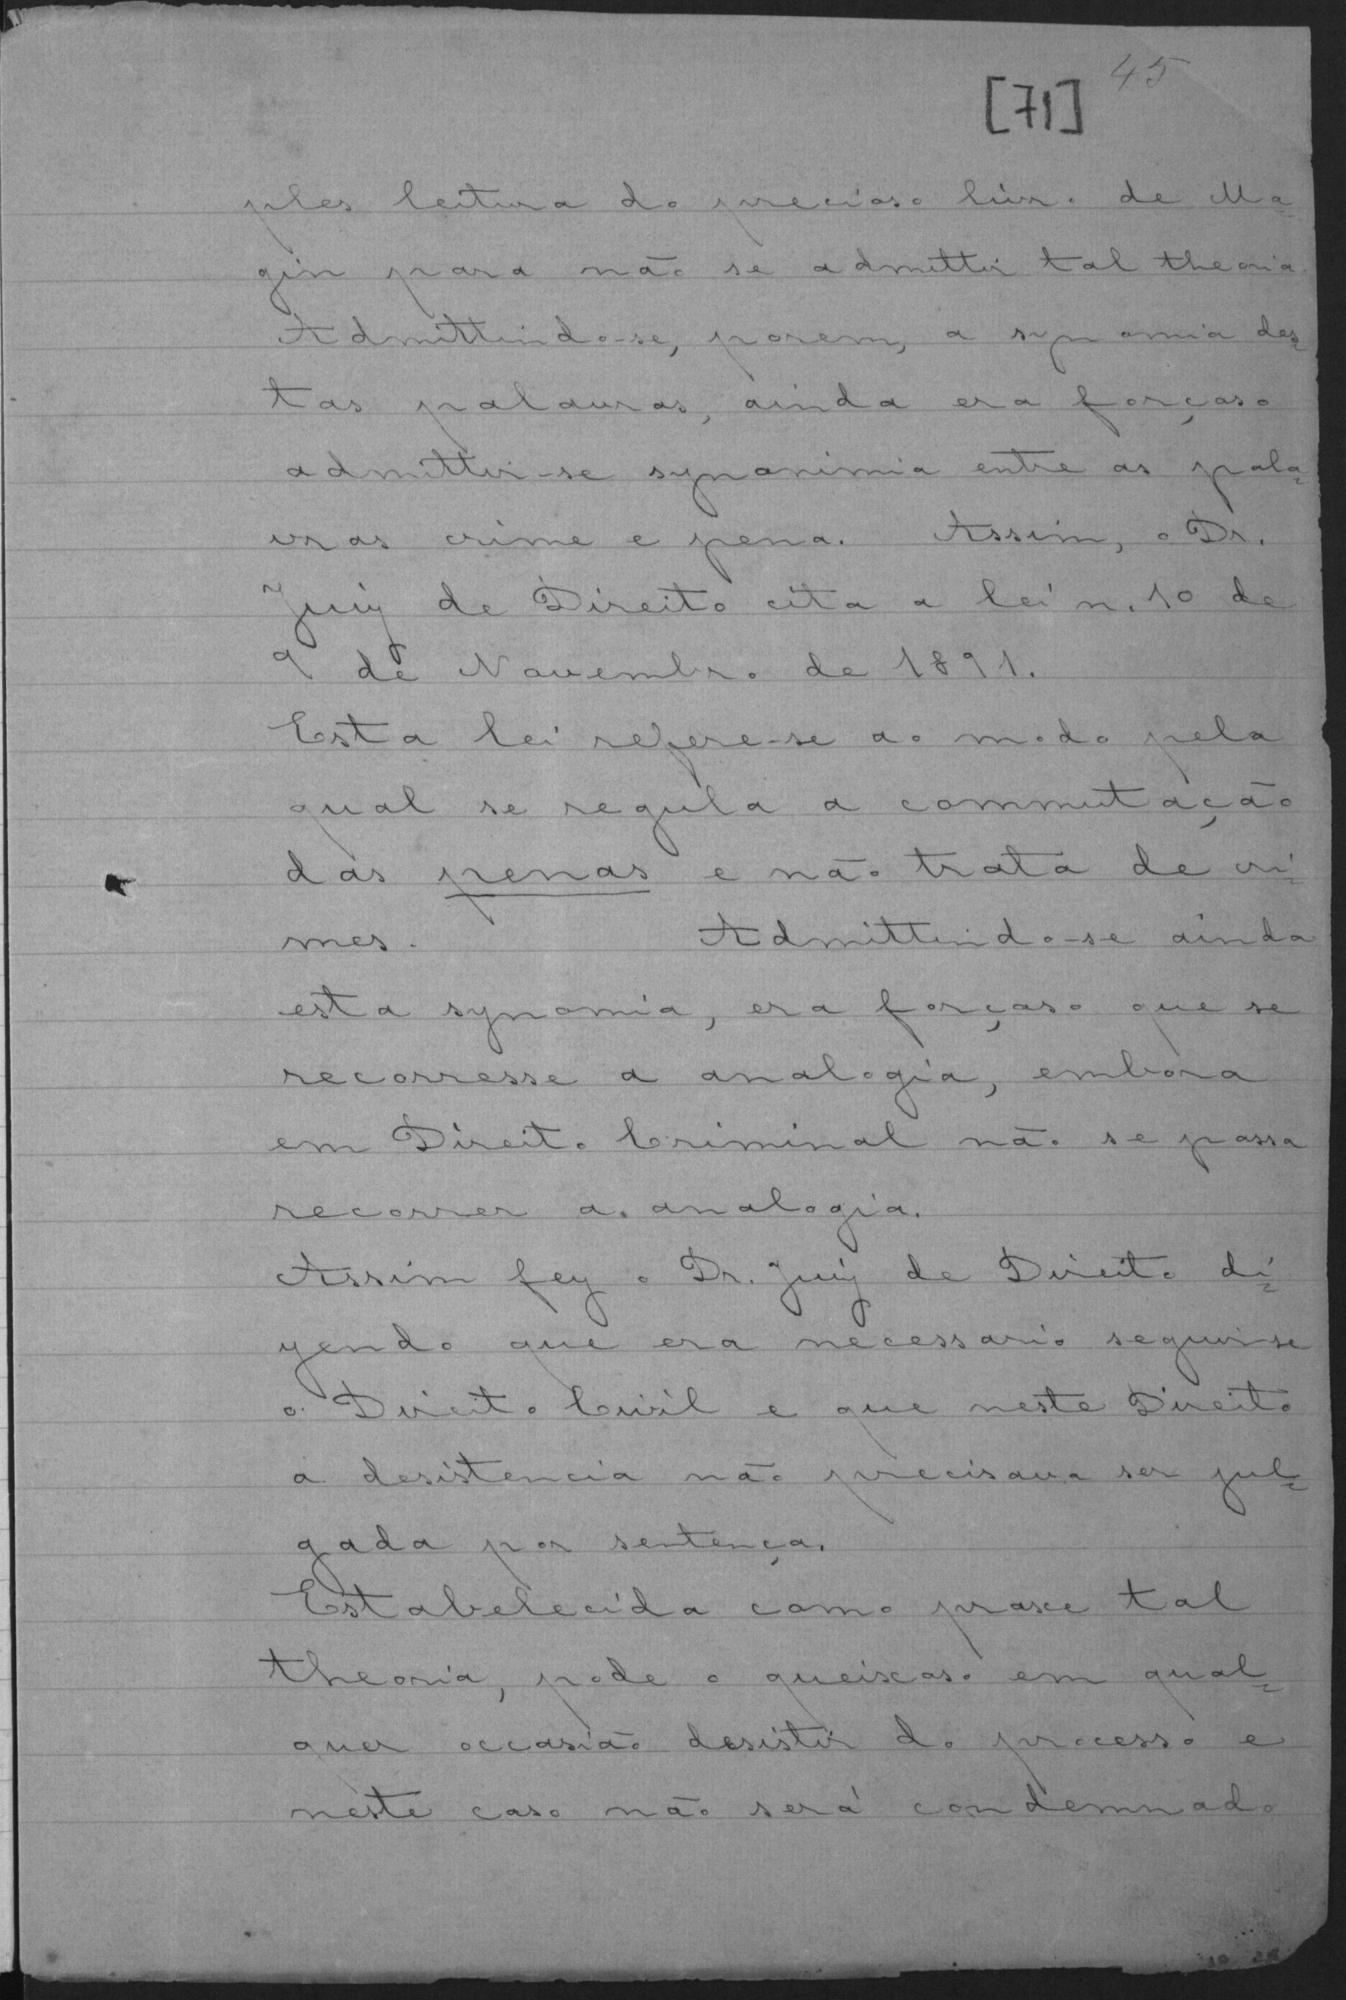 45
[71]
ples leitura do precioso livro de Ma=
gin para não se admittir tal theoria.
Admittindo-se, porem, a synomia des=
tas palavras, ainda era forçoso
admittir-se synonimia entre as pala=
vras crime e pena. Assim, o Dr.
Juiz de Direito cita a lei n. 10 de
9 de Novembro de 1891.
Esta lei refere-se ao modo pela
qual se regula a commutação
das penas e não trata de cri=
mes. Admittindo-se ainda
esta synomia, era forçoso que se
recorresse a analogia, embora
em Direito Criminal não se possa
recorrer a analogia.
Assim fez o Dr. Juiz de Direito di=
zendo que era necessario seguir-se
o Direito Civil e que neste Direito
a desistencia não precisava ser jul=
gada por sentença.
Estabelecida como praxe tal
theoria, pode o queixoso em qual=
quer occasião desistir do processo e
neste caso não será condemnado